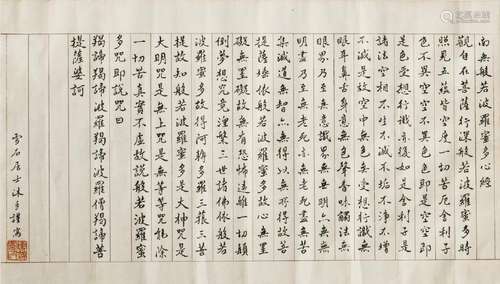 南无般若波羅蜜多心經
觀自在菩薩行深般若波羅蜜多時
照見五蘊皆空度一切苦厄舍利子
色不異空空不異色色即是空空即
是色受想行識亦復如是舍利子是
諸法空相不生不滅不垢不淨不增
不減是故空中無色無受想行識無
眼耳鼻舌身意無色聲香味觸法無
眼界乃至無意識界無無明亦無無
明盡乃至無老死亦無老死盡無苦
集滅道無智亦無得以無所得故菩
提薩埵依般若波羅蜜多故心無罣
礙無罣礙故無有恐怖遠離一切顛
倒夢想究竟涅槃三世諸佛依般若
波羅蜜多故得阿耨多羅三藐三菩
提故知般若波羅蜜多是大神咒是
大明咒是無上咒是無等等咒能除
一切苦真實不虛故說般若波羅蜜
多咒即說咒曰
羯諦羯諦波羅羯諦波羅僧羯諦菩
提薩婆訶
雲石居士沐手謹寫